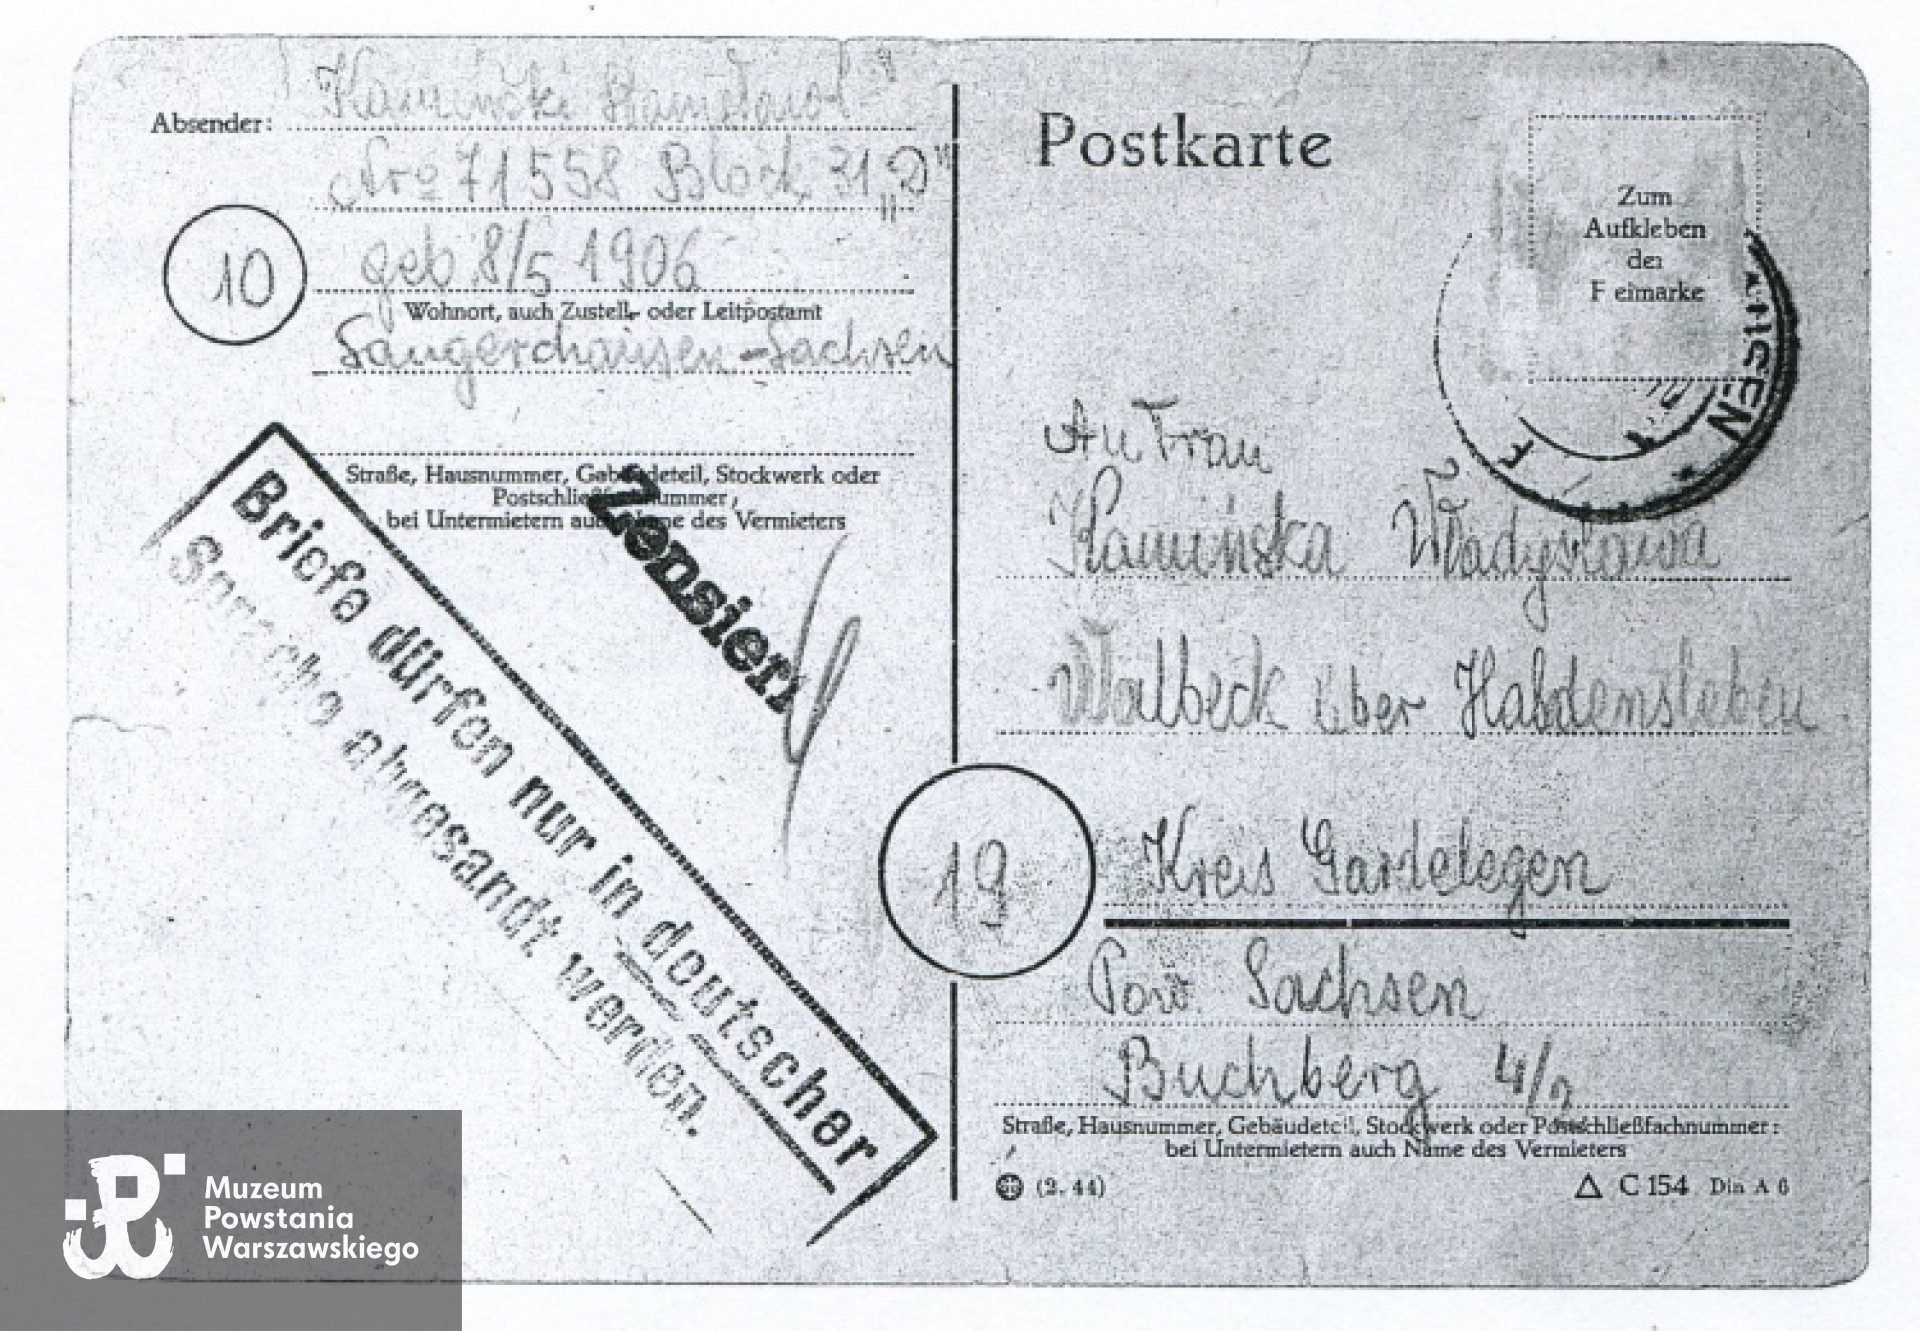 Absender: Kaminski Stanislaus
Nro 71558 Block 31 „D"
10
geb. 8/5 1906
Wohnort, auch Zustell- oder Leitpostamt
Sangerchausen-Sachsen
Straße, Hausnummer, Gebäudeteil, Stockwerk oder
Postschließfachnummer,
bei Untermietern auch Name des Vermieters
Zensiert
Briefe dürfen nur in deutscher
Sprache abgesandt werden.
Postkarte
Zum
Aufkleben
der
F eimarke
HAUSEN
An Frau
Kamińska Władysława
Walbeck über Haldensleben
19
Kreis Gardelegen
Sachsen
Buchberg 4/2
Straße, Hausnummer, Gebäudeteil, Stockwerk oder Postschließfachnummer:
bei Untermietern auch Name des Vermieters
(2. 44)
C 154 Din A 6
Muzeum
Powstania
Warszawskiego